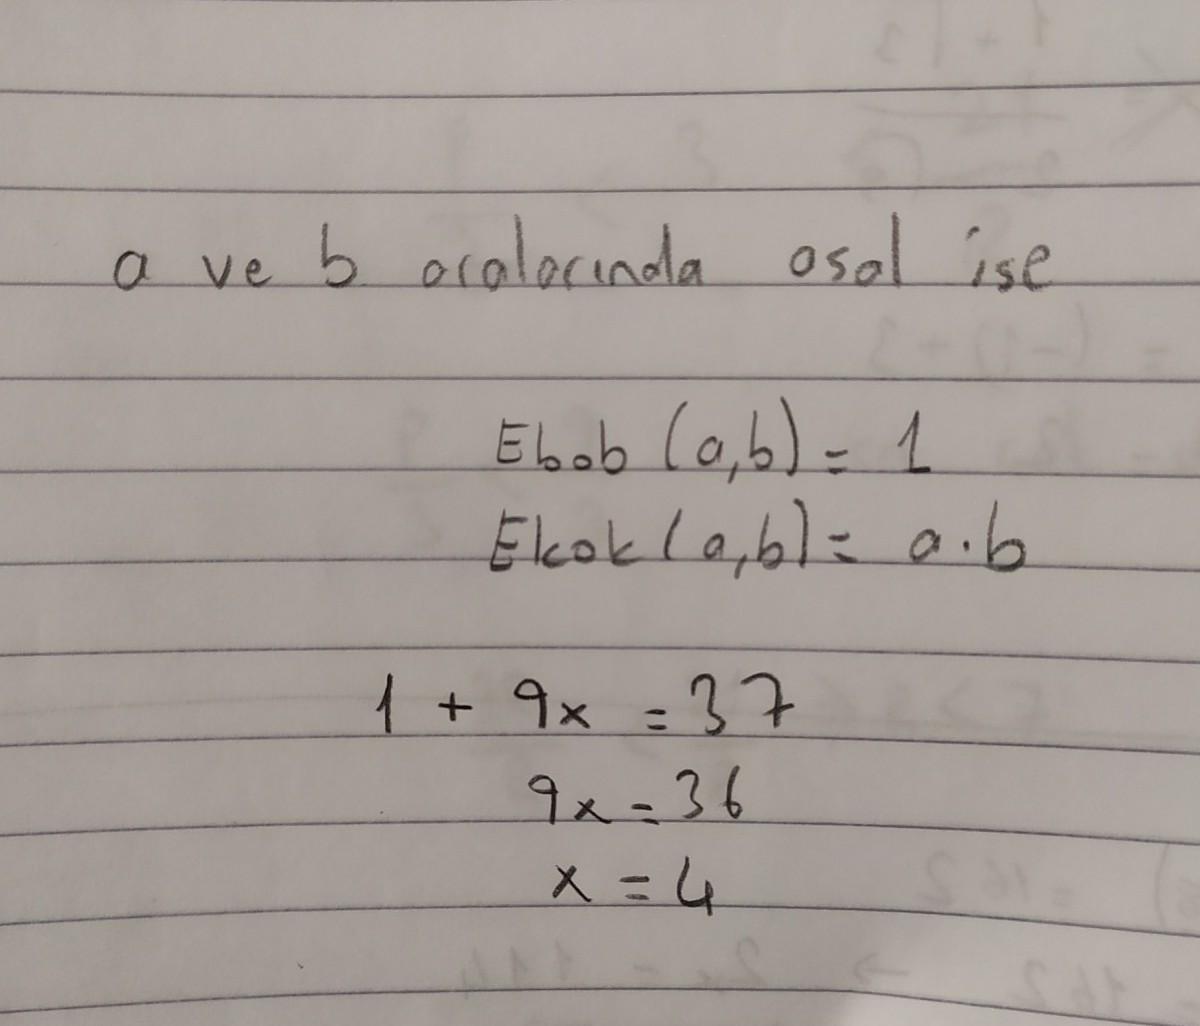 a ve b aralarında asal ise
Ebob (a,b) = 1
Ekok (a,b) = a.b
1 + 9x = 37
9x = 36
x = 4